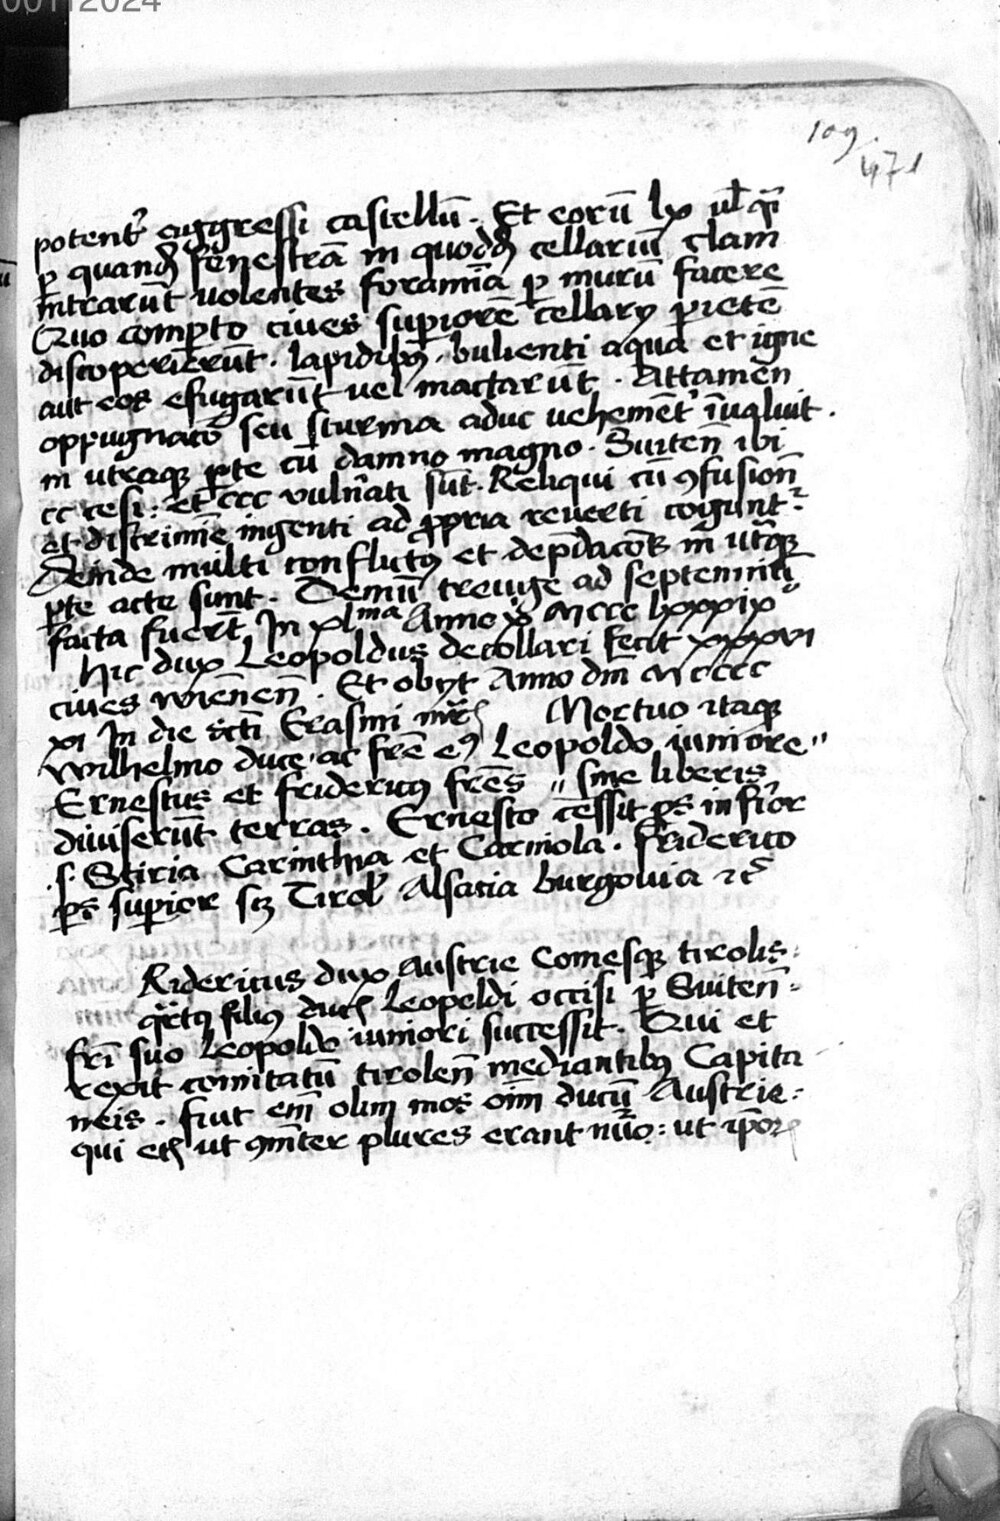 00112024
109
471
potent᷑ ңggressi castellū. Et eorū lx ul̄ qͣi
ꝑ quandā fenestrā in quoddā cellariū clam
intrarūt uolentes foramīa ꝑ murū facere
Quo comꝑto ciues suꝑiorē cellarij ꝑietē
discoperierūt. lapidibꝰ. bulienti aqua et igne
aut eos efugarūt uel mactarūt. Attamen
oppugnatō seu sturma aduc uehemēt᷑ īualuit.
in utraqꝫ ꝑte cū damno magno. Suiten̄ ibi
cc cesi: et ccc vuln̄ati sūt. Reliqui cū ꝯfusion̄
et discrimīe ingenti ad ꝓpria reuerti cogunt᷑
Deinde multi conflictꝰ et dep̄dacōes in utͣqꝫ
ꝑte acte sunt. Demū treuge ad septenniū
facta fuerūt In xlma Anno xͦ Mccc lxxxixͦ
Hic dux Leopoldus decollari fecit xxxvi
ciues wiēnen̄. Et obijt Anno dn̄i Mcccc
xi In die sc̄ti Erasmi mr̄is Mortuo itaqꝫ
Wilhelmo duce. ac fr̄e eꝰ Leopoldo iuniore "
Ernestus et fridericꝰ fr̄es " sine liberis
diuiserūt terras. Ernesto cessit ꝑs infīor
.s. Stiria Carinthia et Carniola. friderico
ꝑs suꝑior scꝫ Tirol̄ Alsatia burgouia ⁊c̄
Ridericus dux Austrie Comesqꝫ tirolis:
qͣrtꝰ filiꝰ ducis Leopoldi occisi ꝑ Suiten̄:
fr̄i suo Leopoldo iuniori successit. Qui et
rexit comitatū tirolen̄ mediantibꝰ Capita
neis. sicut em̄ olim mos oīm ducū Austrie:
qui etiā ut ꝯmīter plures erant nūo: ut ip̄oꝝ